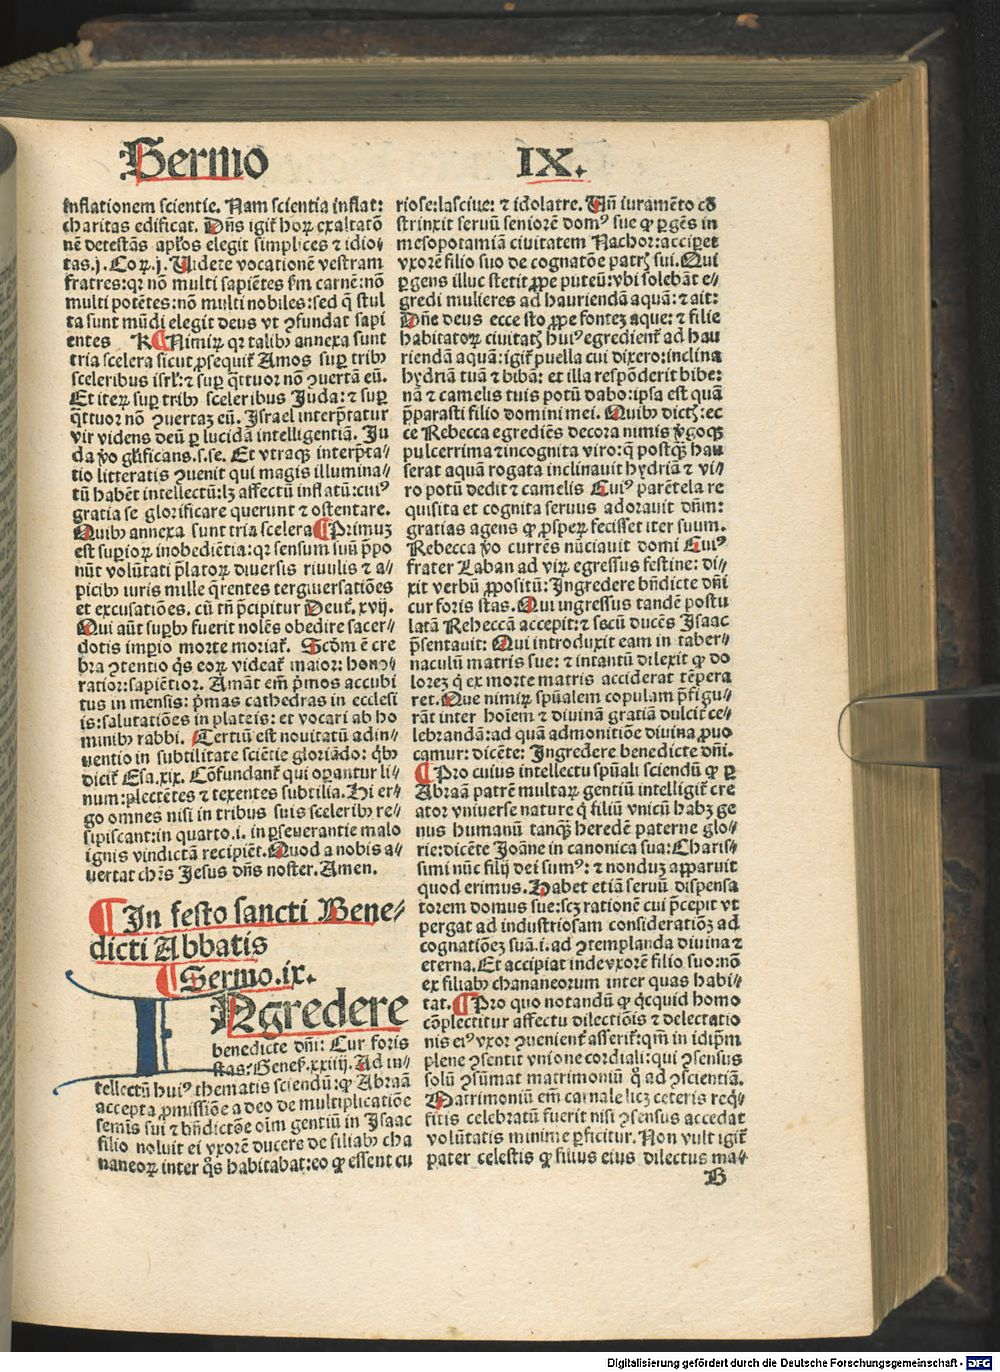 Sermo IX.
inflationem scientie. Nam scientia inflat:
charitas edificat. Dñs igit̃ hoꝝ exaltatõ
nẽ detestãs apl̃os elegit simplices ⁊ idio/
tas.j.Coꝝ.j. Videte vocationẽ vestram
fratres:qꝛ nõ multi sapiẽtes s̃m carnẽ:nõ
multi potẽtes:nõ multi nobiles:sed q̃ stul
ta sunt mũdi elegit deus vt ꝯfundat sapi
entes K ¶Nimiꝝ qꝛ talibꝰ annexa sunt
tria scelera sicut ꝓsequit̃ Amos suꝑ tribꝰ
sceleribus isrl̃:⁊ suꝑ q̃ttuor nõ ꝯuertã eũ.
Et iteꝝ suꝑ tribꝰ sceleribus Juda:⁊ suꝑ
q̃ttuor nõ ꝯuertaz eũ. Israel interp̃tatur
vir videns deũ ꝑ lucidã intelligentiã. Ju
da ṽo gl̃ificans.s.se. Et vtraqꝫ interp̃ta/
tio litteratis ꝯuenit qui magis illumina/
tũ habẽt intellectũ:lꝫ affectũ inflatũ:cuiꝰ
gratia se glorificare querunt ⁊ ostentare.
Quibꝰ annexa sunt tria scelera ¶Primuz
est suꝑioꝝ inobediẽtia:qꝛ sensum suũ p̃po
nũt volũtati p̃latoꝝ diuersis riuulis ⁊ a/
picibꝰ iuris mille q̃rentes tergiuersatiões
et excusatiões. cũ tñ p̃cipitur Deut̃.xvij.
Qui aũt suꝑbꝰ fuerit nolẽs obedire sacer/
dotis imꝑio morte moriat̃. Scd̃m ẽ cre
bra ꝯtentio q̃s eoꝝ videat̃ maior: hono/
ratior:sapiẽtior. Amãt em̃ p̃mos accubi
tus in mensis: p̃mas cathedras in ecclesi
is:salutatiões in plateis: et vocari ab ho
minibꝰ rabbi. Tertiũ est nouitatũ adin/
uentio in subtilitate sciẽtie gloriãdo: q̃bꝰ
dicit̃ Esa.xix. Cõfundant̃ qui oꝑantur li/
num:plectẽtes ⁊ texentes subtilia. Hi er/
go omnes nisi in tribus suis sceleribꝰ re/
sipiscant:in quarto.i. in ꝑseuerantie malo
ignis vindictã recipiẽt. Quod a nobis a/
uertat chr̃s Jesus dñs noster. Amen.
¶In festo sancti Bene/
dicti Abbatis
¶Sermo.ix.
INgredere
benedicte dñi: Cur foris
stas? Geneẽ.xxiiij. Ad in/
tellectũ huiꝰ thematis sciendũ:ꝙ Abraã
accepta ꝓmissiõe a deo de multiplicatiõe
semĩs sui ⁊ bñdictõe oĩm gentiũ in Isaac
filio noluit ei vxorẽ ducere de filiabꝰ cha
naneoꝝ inter q̃s habitabat:eo ꝙ essent cu
riose:lasciue: ⁊ idolatre. Vñ iuramẽto cõ
strinxit seruũ seniorẽ domꝰ sue ꝙ ꝑgẽs in
mesopotamiã ciuitatem Nachor:acciꝑet
vxorẽ filio suo de cognatõe patrꝭ sui. Qui
ꝑgens illuc stetit ꝓpe puteũ:vbi solebãt e/
gredi mulieres ad hauriendã aquã:⁊ ait:
Dñe deus ecce sto ꝓpe fontez aque:⁊ filie
habitatoꝝ ciuitatꝭ huiꝰ egredient̃ ad hau
riendã aquã:igit̃ puella cui dixero:inclina
hydriã tuã ⁊ bibã: et illa respõderit bibe:
nã ⁊ camelis tuis potũ dabo:ipsa est quã
p̃parasti filio domini mei. Quibꝰ dictꝭ:ec
ce Rebecca egrediẽs decora nimis v̓goqꝫ
pulcerrima ⁊incognita viro:q̃ postqꝫ̃ hau
serat aquã rogata inclinauit hydriã ⁊ vi/
ro potũ dedit ⁊ camelis Cuiꝰ parẽtela re
quisita et cognita seruus adorauit dñm:
gratias agens ꝙ ꝓsperꝝ fecisset iter suum.
Rebecca ṽo currẽs nũciauit domi Cuiꝰ
frater Laban ad viꝝ egressus festine: di/
xit verbũ ꝓpositũ: Ingredere bñdicte dñi
cur foris stas. Qui ingressus tandẽ postu
latã Rebeccã accepit:⁊ secũ ducẽs Isaac
p̃sentauit: Qui introduxit eam in taber/
naculũ matris sue: ⁊ intantũ dilexit ꝙ do
lorez q̃ ex morte matris acciderat tẽpera
ret. Que nimiꝝ spũalem copulam p̃figu/
rãt inter hoĩem ⁊ diuinã gratiã dulcit̃ ce/
lebrandã:ad quã admonitiõe diuina ꝓuo
camur: dicẽte: Ingredere benedicte dñi.
¶Pro cuius intellectu spũali sciendũ ꝙ ꝑ
Abraã patrẽ multaꝝ gentiũ intelligit̃ cre
ator vniuerse nature q̃ filiũ vnicũ habꝫ ge
nus humanũ tanqꝫ̃ heredẽ paterne glo/
rie:dicẽte Joãne in canonica sua:Charis/
simi nũc filij dei sumꝰ: ⁊ nonduz apparuit
quod erimus. Habet etiã seruũ dispensa
torem domus sue:scꝫ rationẽ cui p̃cepit vt
pergat ad industriosam consideratiõꝫ ad
cognatiõeꝫ suã.i.ad ꝯtemplanda diuina ⁊
eterna. Et accipiat inde vxorẽ filio suo:nõ
ex filiabꝰ chananeorum inter quas habi/
tat. ¶Pro quo notandũ ꝙ q̃cquid homo
cõplectitur affectu dilectiõis ⁊ delectatio
nis eiꝰ vxor ꝯuenient̃ asserit̃:qm̃ in idip̃m
plene ꝯsentit vnione cordiali:qui ꝯsensus
solũ ꝯsũmat matrimoniũ q̊ ad ꝯscientiã.
Matrimoniũ em̃ carnale licꝫ ceteris req̃/
sitis celebratũ fuerit nisi ꝯsensus accedat
volũtatis minime ꝑficitur. Non vult igit̃
pater celestis ꝙ filius eius dilectus ma/
B
Digitalisierung gefördert durch die Deutsche Forschungsgemeinschaft - DFG